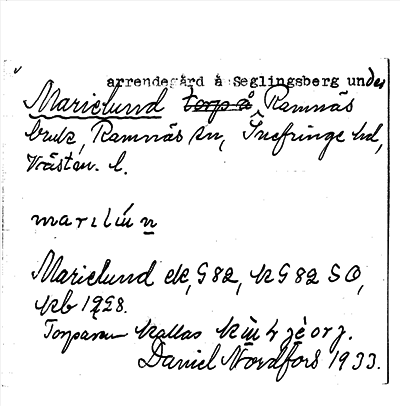 arrendegård å Seglingsberg under
Marielund torp å Ramnäs
bruk, Ramnäs sn, Snefringe hd,
Västm. l.
marılún
Marielund ek, G 82, k G 82 SO,
kb 1928.
Torparen kallas
Daniel Nordfors 1933.